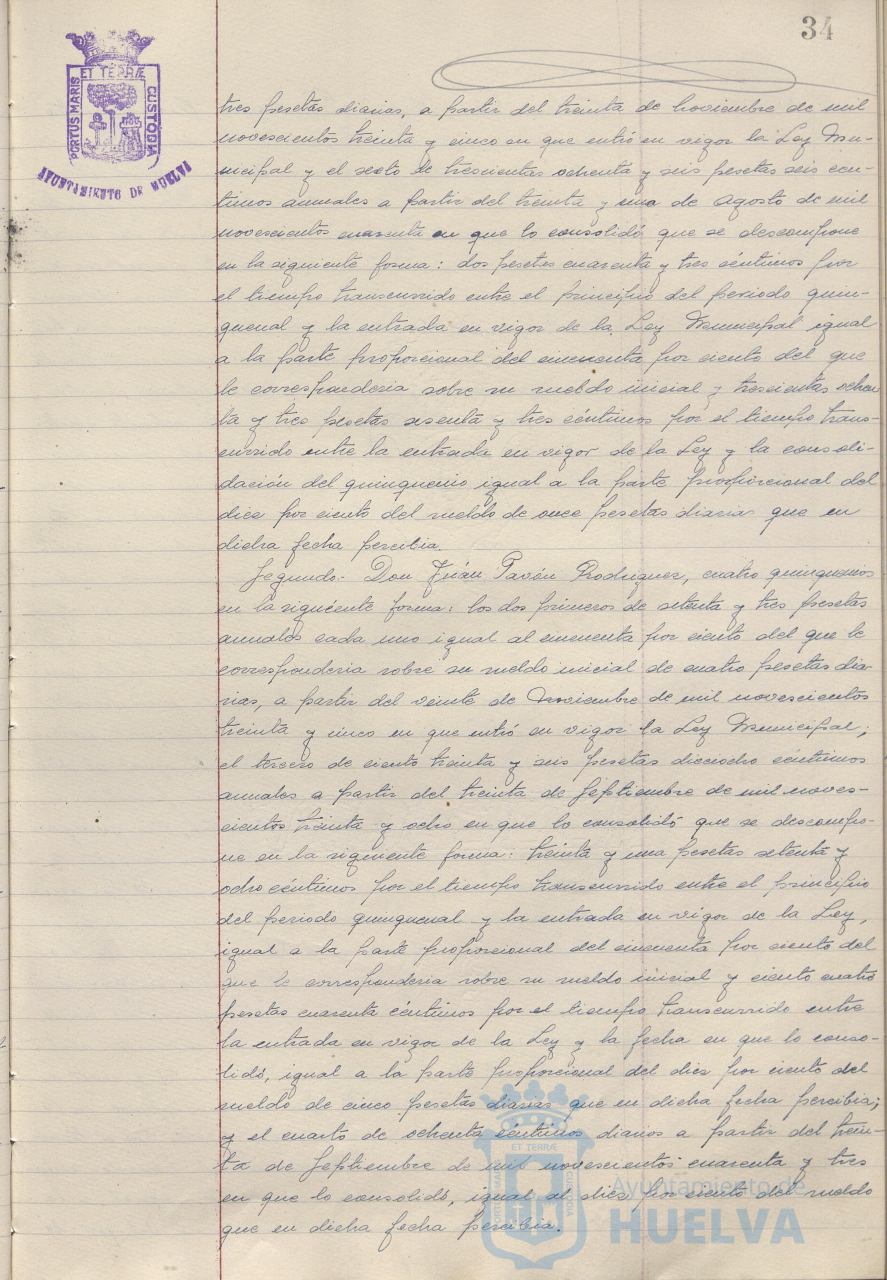 34
ET TERRÆ
PORTUS MARIS
CUSTODIA
AYUNTAMIENTO DE HUELVA
tres pesetas diarias, a partir del treinta de Noviembre de mil
novescientos treinta y cinco en que entró en vigor la Ley Mu-
nicipal y el sexto de trescientas ochenta y seis pesetas seis cen-
timos anuales a partir del treinta y uno de Agosto de mil
novescientos cuarenta en que lo consolidó que se descompone
en la siguiente forma: dos pesetas cuarenta y tres céntimos por
el tiempo transcurrido entre el principio del periodo quin-
quenal y la entrada en vigor de la Ley Municipal igual
a la parte proporcional del cincuenta por ciento del que
le corresponderia sobre su sueldo inicial y trescientas ochen
ta y tres pesetas sesenta y tres céntimos por el tiempo trans-
currido entre la entrada en vigor de la Ley y la consoli-
dación del quinquenio igual a la parte proporcional del
diez por ciento del sueldo de once pesetas diarias que en
dicha fecha percibia.
Segundo.- Don Juán Pavón Rodriguez, cuatro quinquenios
en la siguiente forma: los dos primeros de setenta y tres pesetas
anuales cada uno igual al cincuenta por ciento del que le
corresponderia sobre su sueldo inicial de cuatro pesetas dia-
rias, a partir del veinte de Noviembre de mil novescientos
treinta y cinco en que entró en vigor la Ley Municipal;
el tercero de ciento treinta y seis pesetas dieciocho céntimos
anuales a partir del treinta de Septiembre de mil noves-
cientos treinta y ocho en que lo consolidó que se descompo-
ne en la siguiente forma: treinta y una pesetas setenta y
ocho céntimos por el tiempo transcurrido entre el principio
del periodo quinquenal y la entrada en vigor de la Ley,
igual a la parte proporcional del cincuenta por ciento del
que le corresponderia sobre su sueldo inicial y ciento cuatro
pesetas cuarenta céntimos por el tiempo transcurrido entre
la entrada en vigor de la Ley y la fecha en que lo conso-
lidó, igual a la parte proporcional del diez por ciento del
sueldo de cinco pesetas diarias que en dicha fecha percibia;
y el cuarto de ochenta céntimos diarios a partir del trein-
ta de Septiembre de mil novescientos cuarenta y tres
en que lo consolidó, igual al diez por ciento del sueldo
que en dicha fecha percibia.
ET TERRÆ
PORTUS MARIS
CUSTODIA
Ayuntamiento de
HUELVA